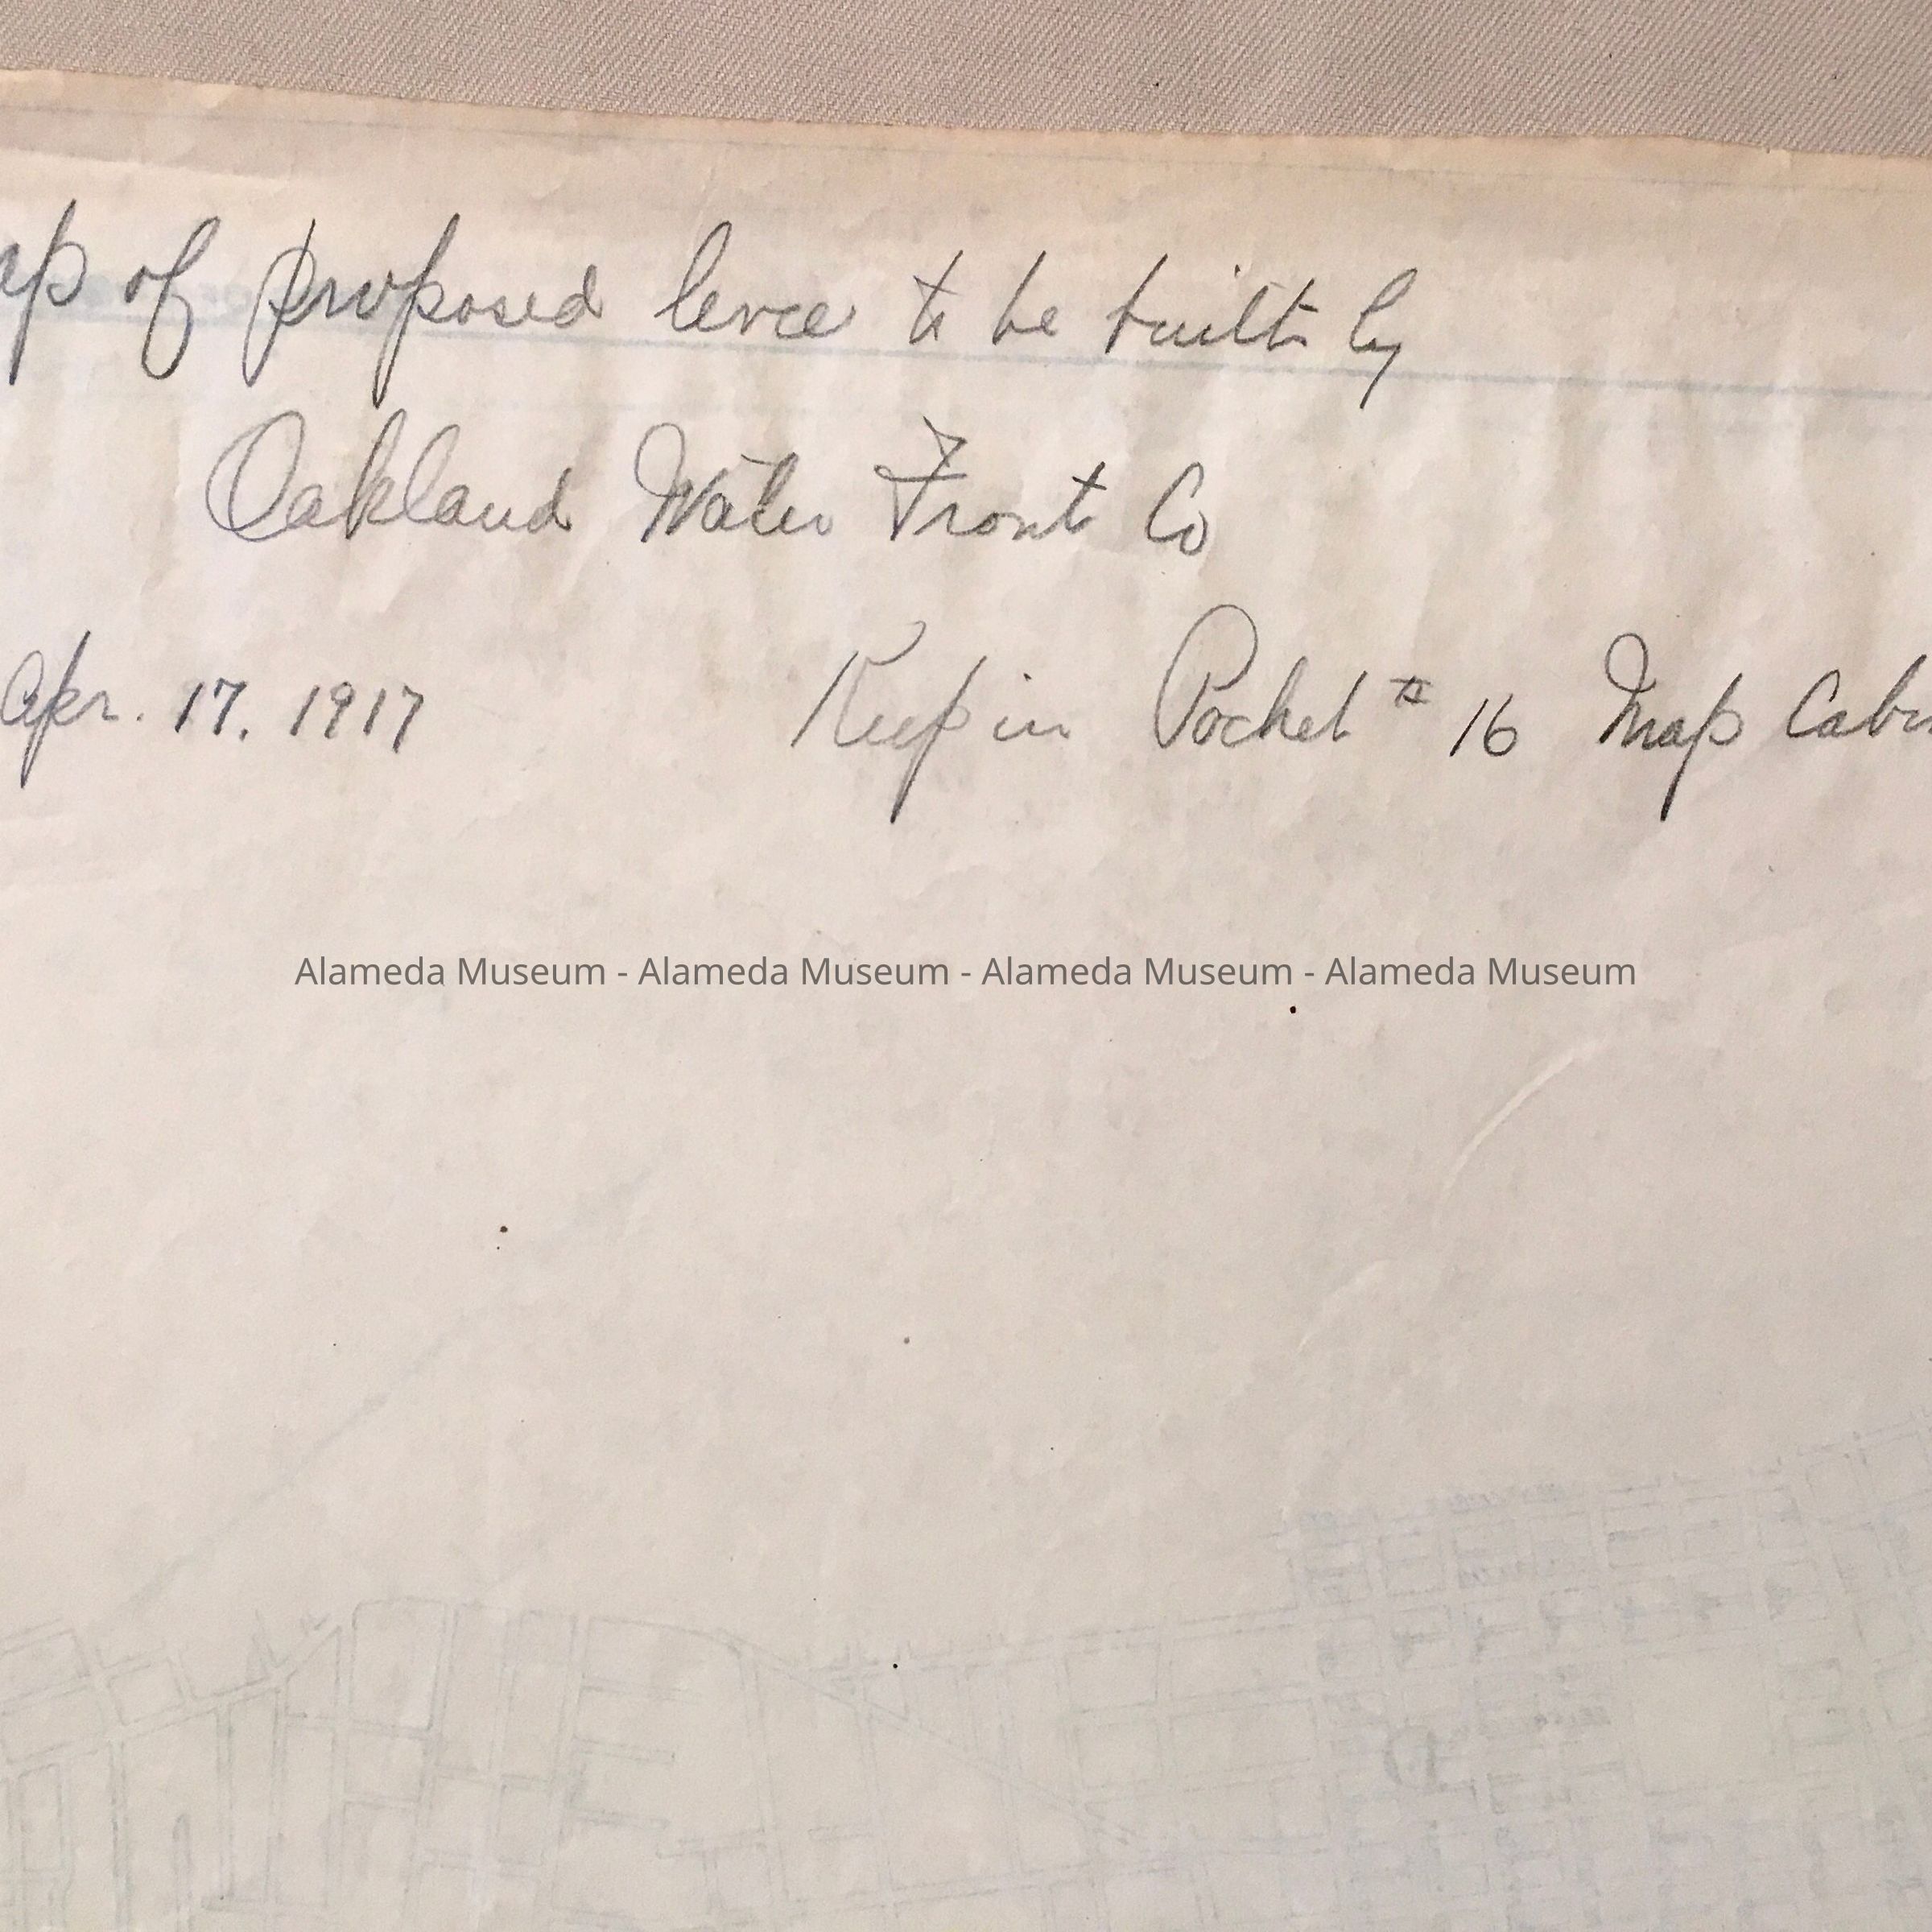 ap of proposed levee to be built by
Oakland Water Front Co
Apr. 17. 1917 Keep in Pocket # 16 Map Cabin
Alameda Museum - Alameda Museum - Alameda Museum - Alameda Museum